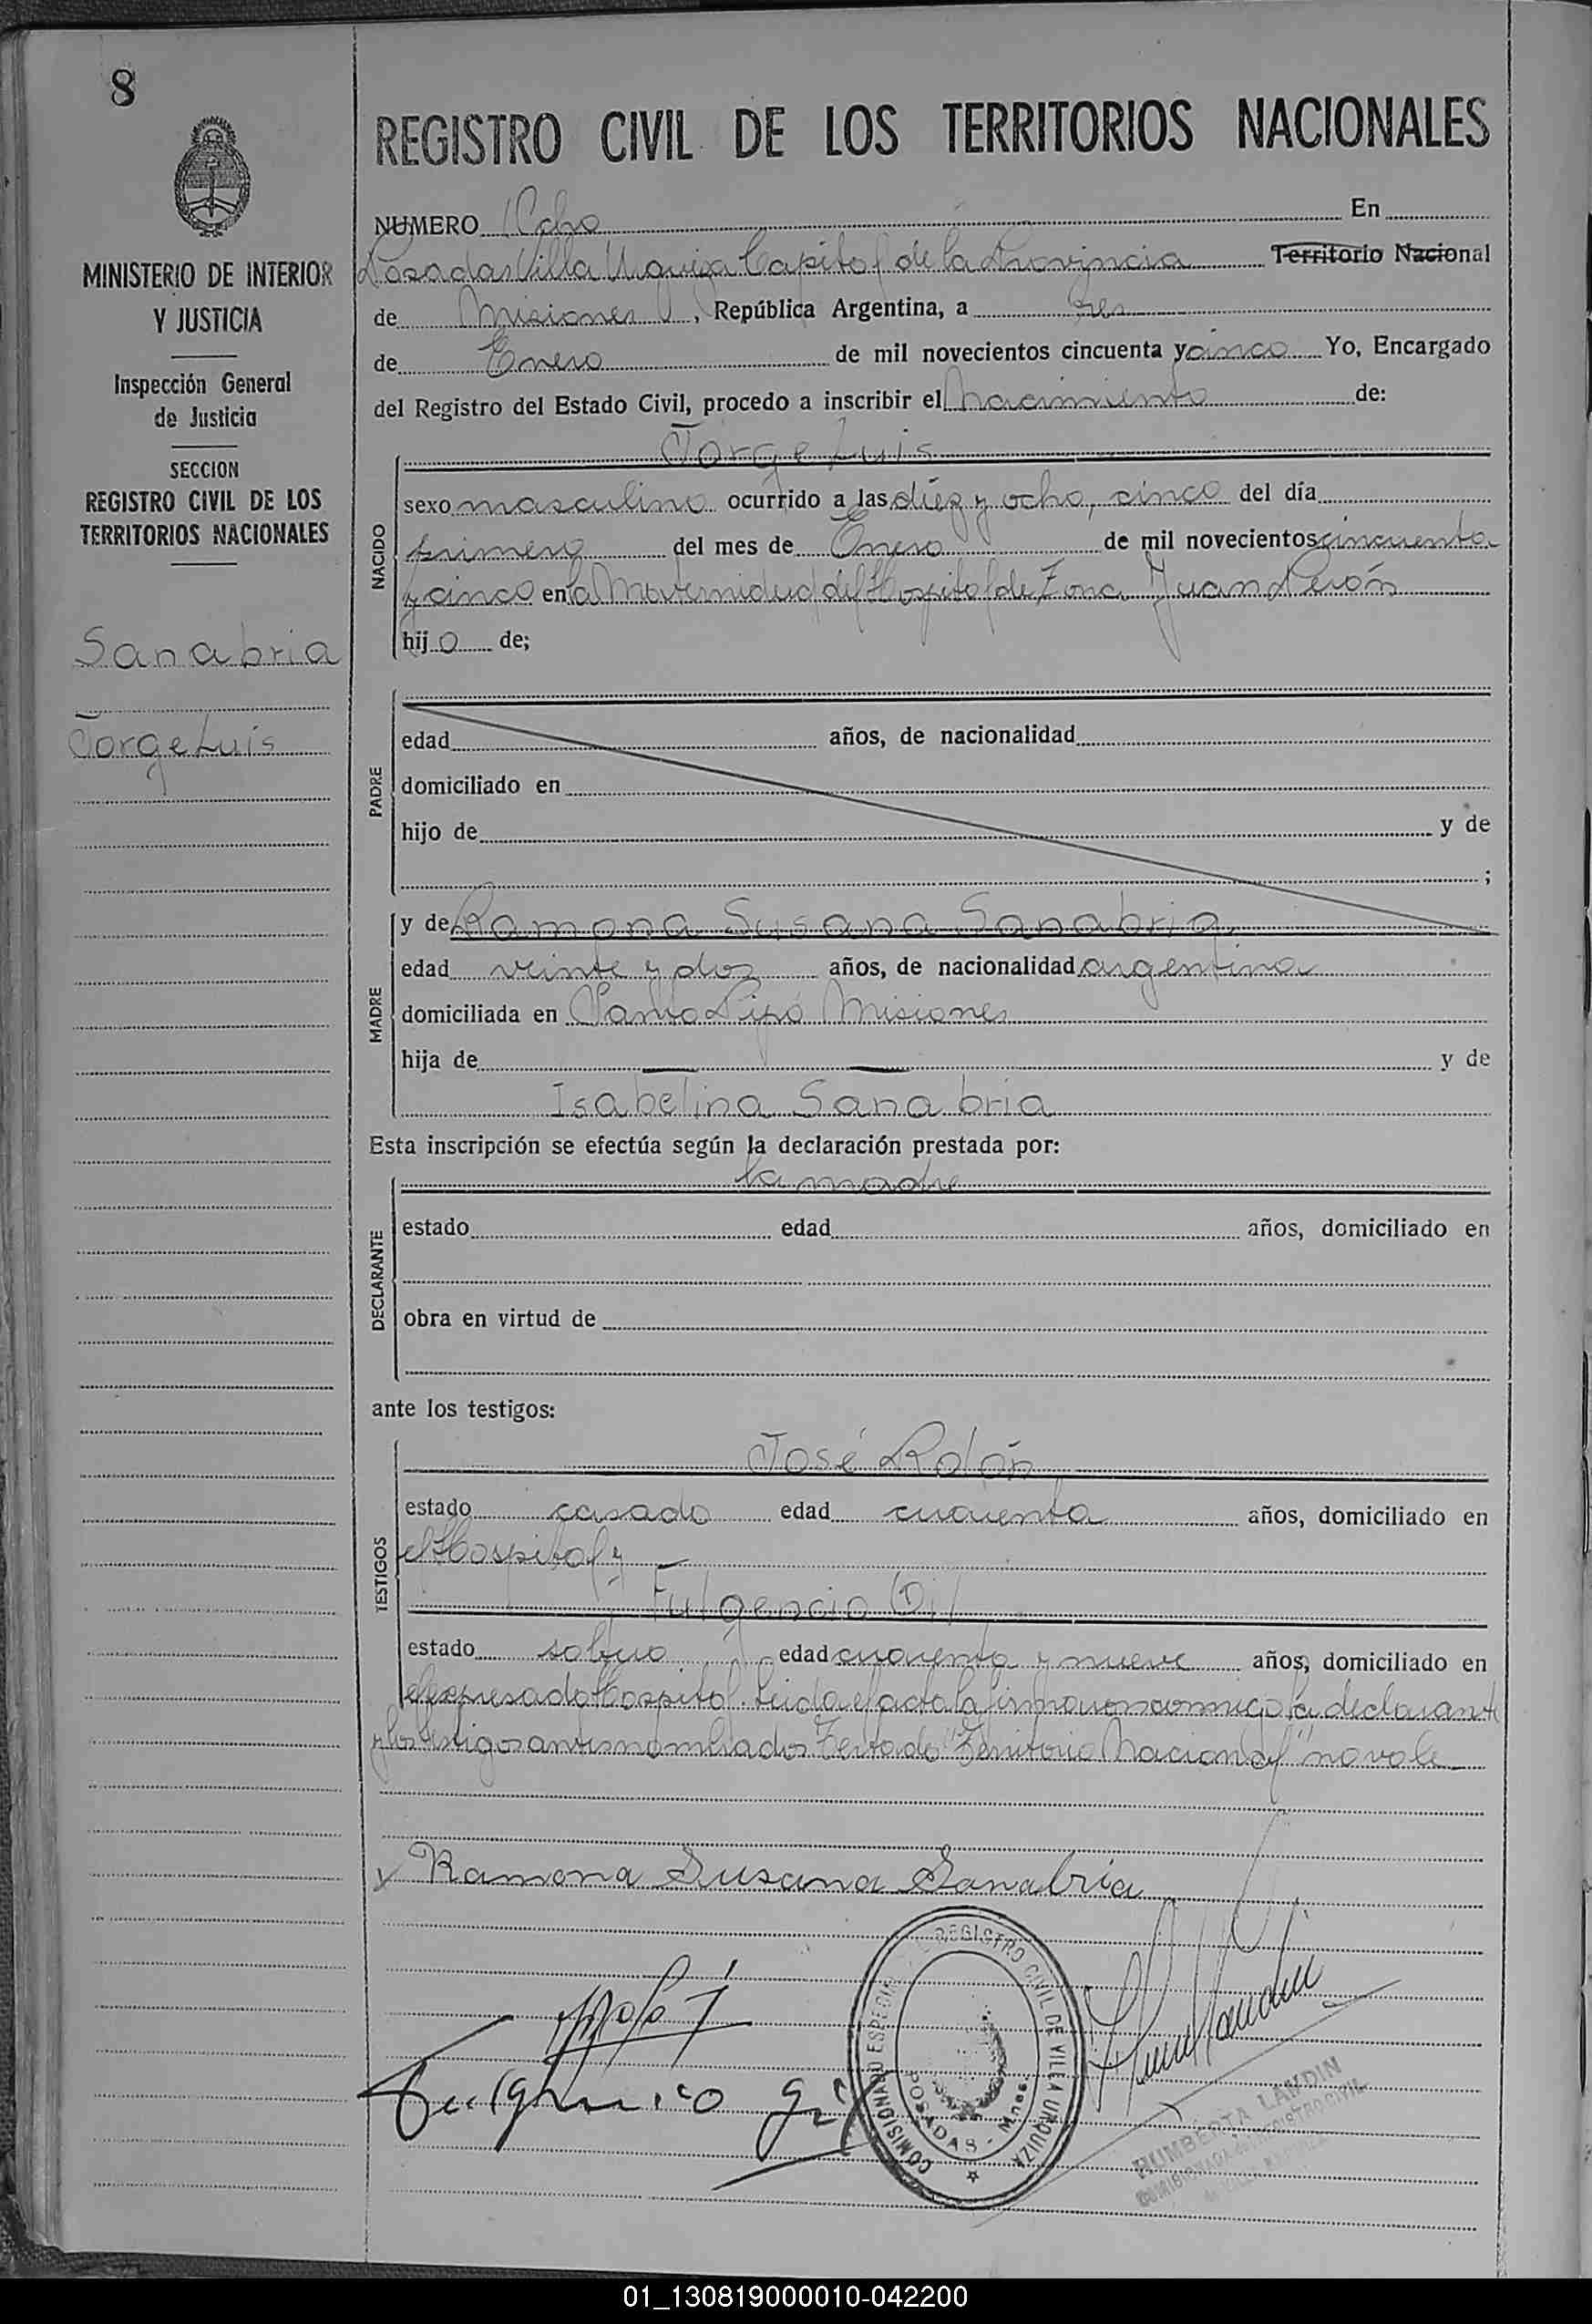 8
MINISTERIO DE INTERIOR
Y JUSTICIA
Inspección General
de Justicia
SECCION
REGISTRO CIVIL DE LOS
TERRITORIOS NACIONALES
Sanabria
Jorge Luis
REGISTRO CIVIL DE LOS TERRITORIOS NACIONALES
NUMERO Ocho En
Posadas Villa Urquiza Capital de la Provincia Territorio Nacional
de Misiones, República Argentina, a tres
de Enero de mil novecientos cincuenta y cinco Yo, Encargado
del Registro del Estado Civil, procedo a inscribir el nacimiento de:
NACIDO
Jorge Luis
sexo masculino ocurrido a las diez y ocho, cinco del día
primero del mes de Enero de mil novecientos cincuenta
y cinco en la Maternidad del Hospital de Zona Juan Perón
hijo de;
PADRE
edad años, de nacionalidad
domiciliado en
hijo de y de
;
MADRE
y de Ramona Susana Sanabria
edad veinte y dos años, de nacionalidad argentina
domiciliada en Santo Pipó Misiones
hija de — — y de
Isabelina Sanabria
Esta inscripción se efectúa según la declaración prestada por:
DECLARANTE
la madre
estado edad años, domiciliado en
obra en virtud de
ante los testigos:
TESTIGOS
José Rolón
estado casado edad cuarenta años, domiciliado en
el Hospital y
Fulgencio Gil
estado soltero edad cuarenta y nueve años, domiciliado en
el expresado Hospital. Leida el acta la firmaron conmigo la declarante
y los testigos antes nombrados Testado "Territorio Nacional" no vale
x Ramona Susana Sanabria
Fulgencio Gil
COMISIONADO ESPECIAL REGISTRO CIVIL DE VILLA URQUIZA
POSADAS - Mnes.
HUMBERTA LANDIN
COMISIONADA del REGISTRO CIVIL
01_130819000010-042200